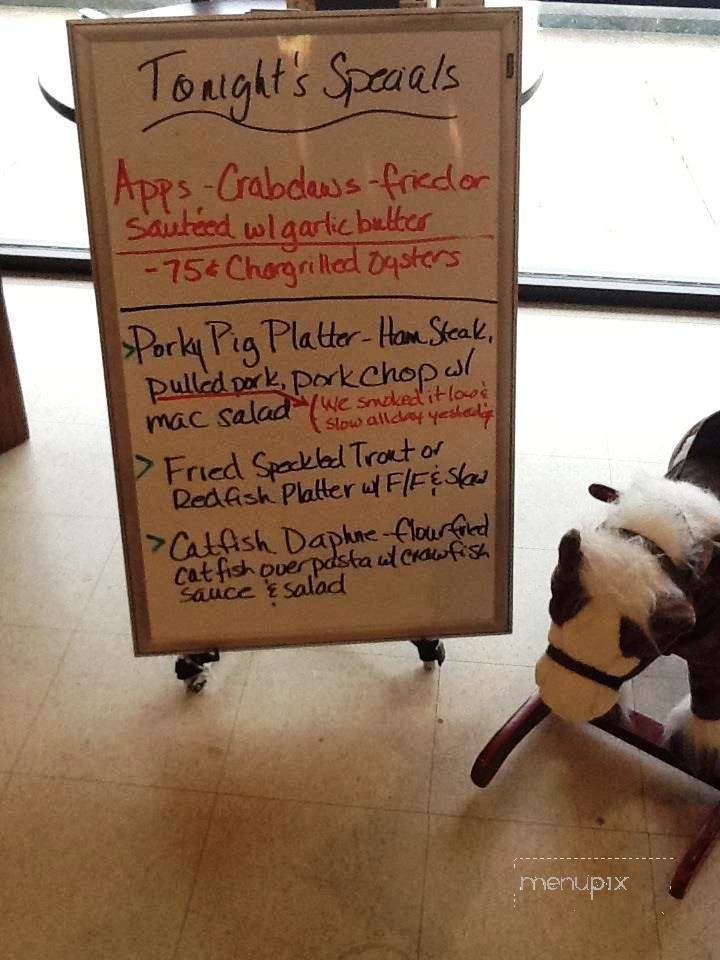 Tonight's Specials
Apps - Crabclaws - fried or
sautéed w/ garlic butter
- 75¢ Chargrilled Oysters
> Porky Pig Platter - Ham Steak,
pulled pork, pork chop w/
mac salad (We smoked it low &
slow all day yesterday
> Fried Speckled Trout or
Redfish Platter w/ F/F & Slaw
> Catfish Daphne - flour fried
catfish over pasta w/ crawfish
sauce & salad
menupix